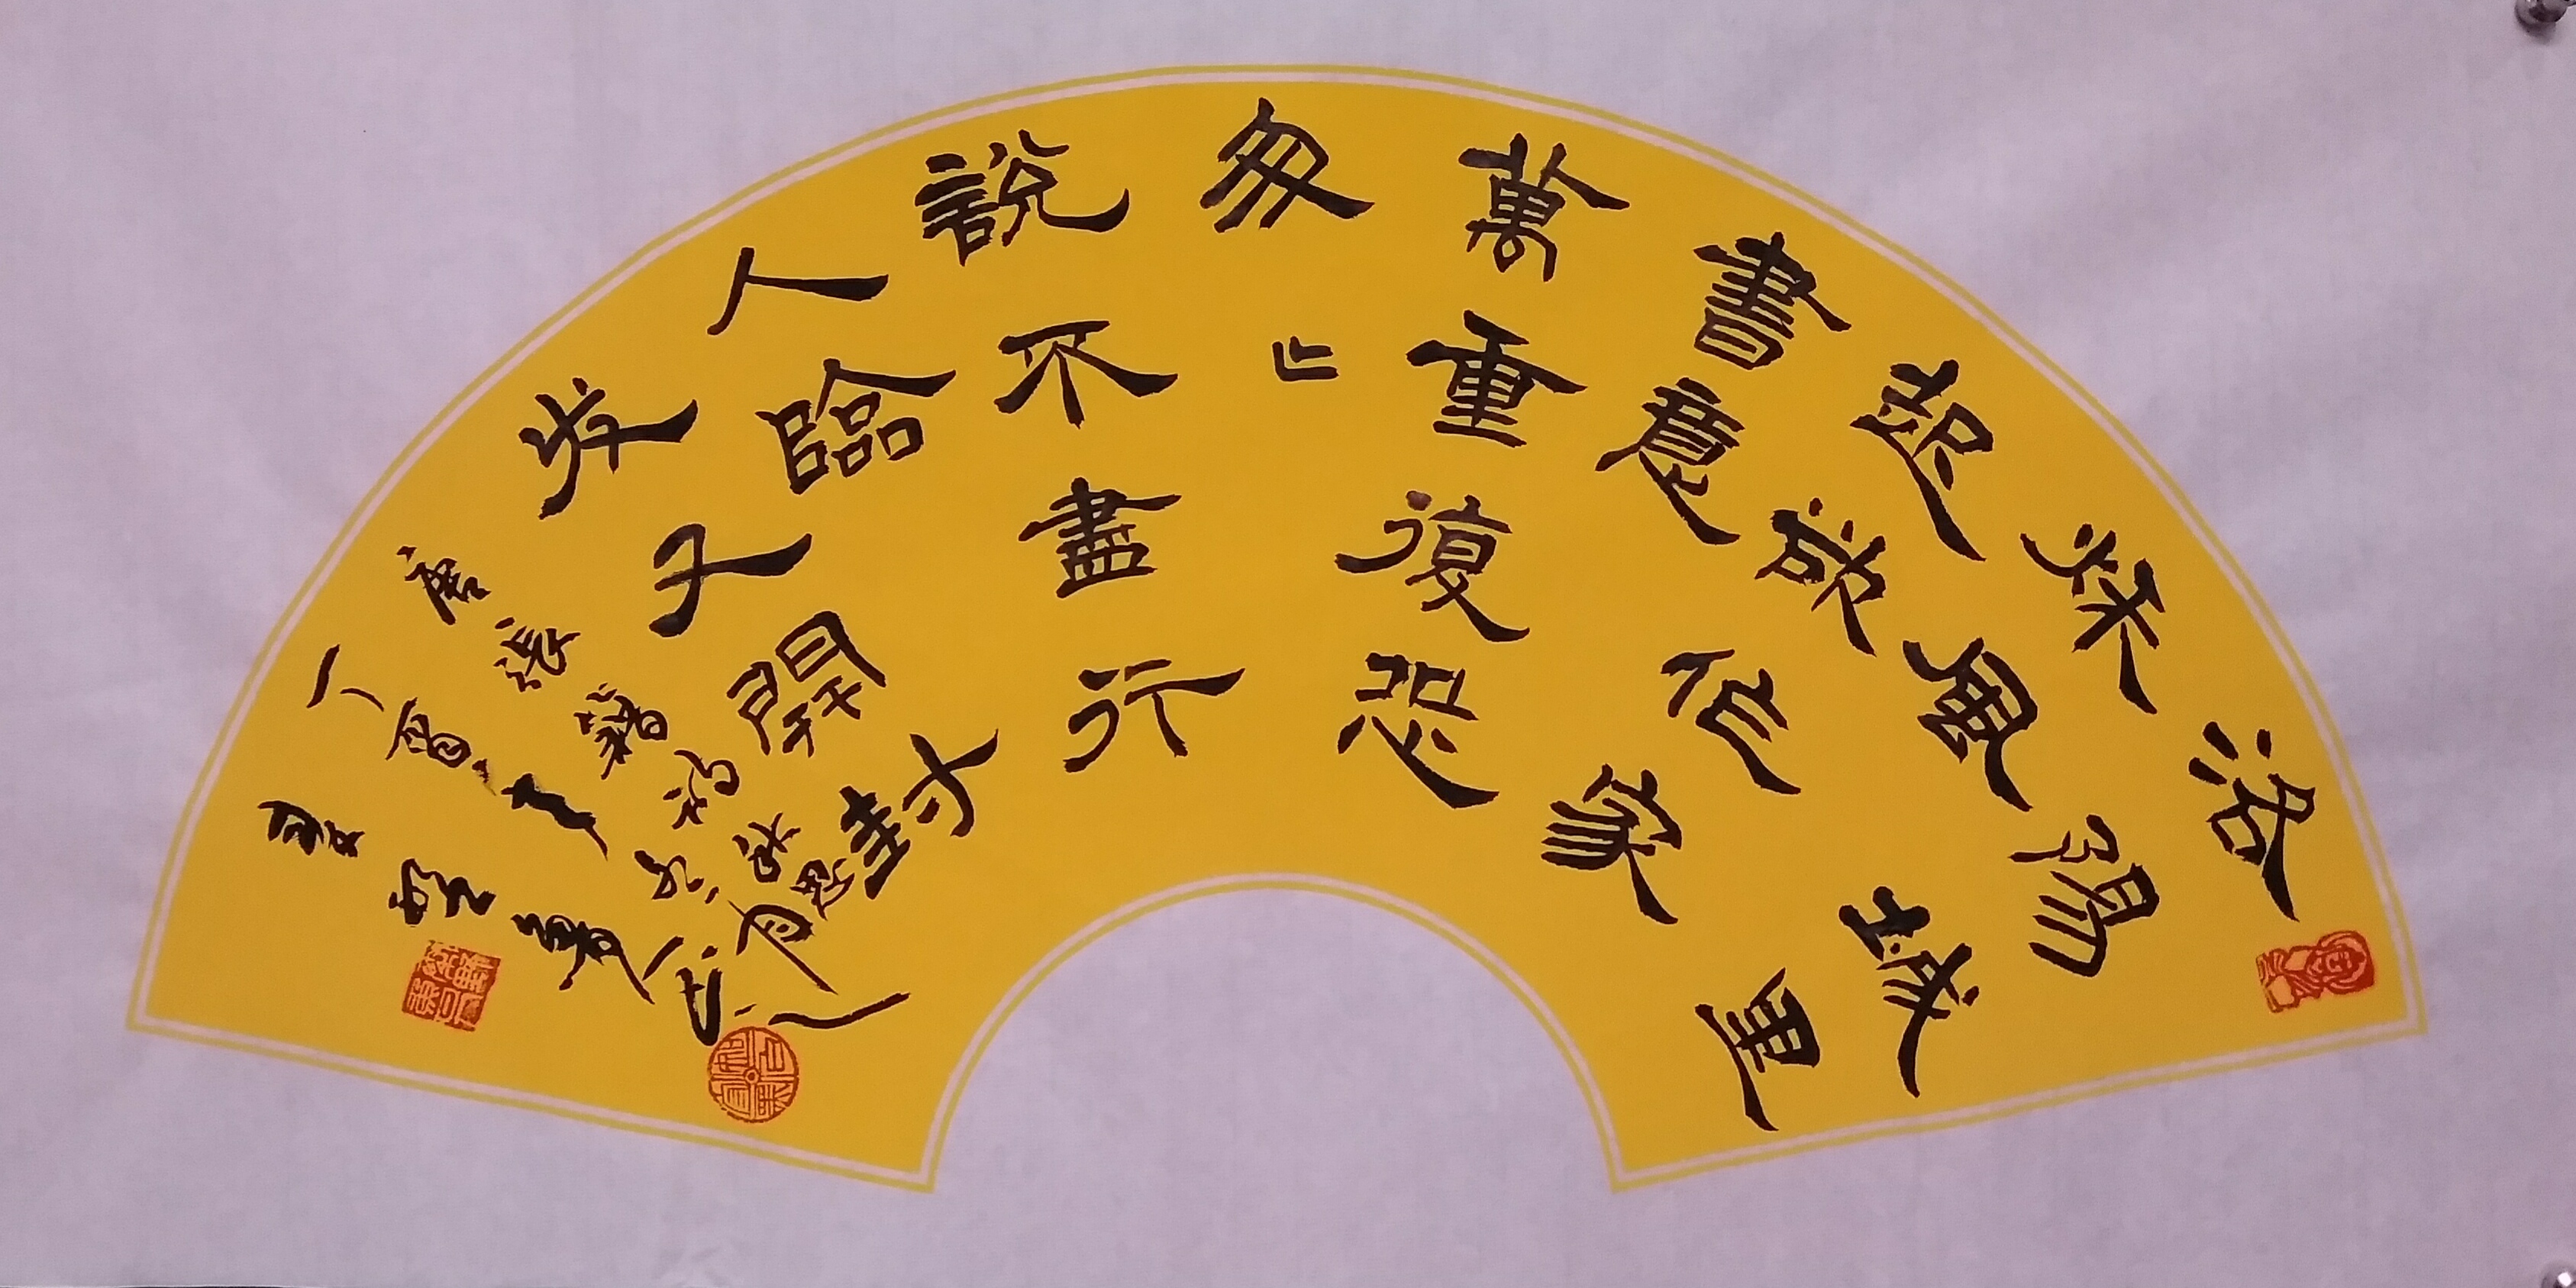 洛陽城里
秋風
起欲作家
書意
萬重復恐
匆〻
說不盡行
人臨
發又開封
唐張籍詩秋思
丁酉年